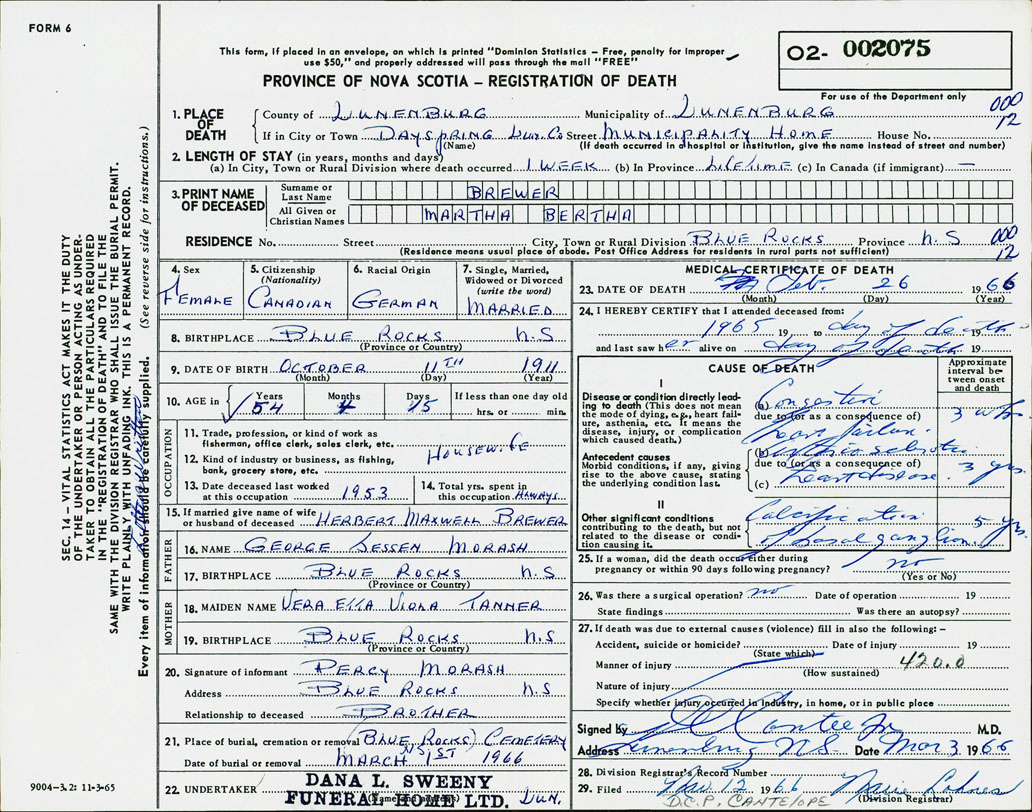 FORM 6
This form, if placed in an envelope, on which is printed "Dominion Statistics – Free, penalty for improper
use $50," and properly addressed will pass through the mail "FREE"
O2- 002075
For use of the Department only
PROVINCE OF NOVA SCOTIA – REGISTRATION OF DEATH
000
12
1. PLACE OF DEATH
County of LUNENBURG Municipality of LUNENBURG
If in City or Town DAYSPRING LUN. CO Street MUNICIPALITY HOME House No.
(Name) (If death occurred in a hospital or institution, give the name instead of street and number)
2. LENGTH OF STAY (in years, months and days)
(a) In City, Town or Rural Division where death occurred 1 WEEK (b) In Province LIFETIME (c) In Canada (if immigrant) —
3. PRINT NAME OF DECEASED
Surname or Last Name BREWER
All Given or Christian Names MARTHA BERTHA
RESIDENCE No. Street City, Town or Rural Division BLUE ROCKS Province N.S
(Residence means usual place of abode. Post Office Address for residents in rural parts not sufficient)
000
12
4. Sex
FEMALE
5. Citizenship (Nationality)
CANADIAN
6. Racial Origin
GERMAN
7. Single, Married, Widowed or Divorced (write the word)
MARRIED
8. BIRTHPLACE BLUE ROCKS N.S
(Province or Country)
9. DATE OF BIRTH OCTOBER 11TH 1911
(Month) (Day) (Year)
10. AGE in Years 54 Months 4 Days 15 If less than one day old
hrs. or min.
OCCUPATION
11. Trade, profession, or kind of work as
fisherman, office clerk, sales clerk, etc.
HOUSEWIFE
12. Kind of industry or business, as fishing,
bank, grocery store, etc.
13. Date deceased last worked
at this occupation 1953
14. Total yrs. spent in
this occupation ALWAYS
15. If married give name of wife
or husband of deceased HERBERT MAXWELL BREWER
FATHER
16. NAME GEORGE JESSEN MORASH
17. BIRTHPLACE BLUE ROCKS N.S
(Province or Country)
MOTHER
18. MAIDEN NAME VERA ETTA VIOLA TANNER
19. BIRTHPLACE BLUE ROCKS N.S
(Province or Country)
20. Signature of informant PERCY MORASH
Address BLUE ROCKS N.S
Relationship to deceased BROTHER
21. Place of burial, cremation or removal BLUE ROCKS CEMETERY
N.S
Date of burial or removal MARCH 1ST 1966
22. UNDERTAKER DANA L. SWEENY
FUNERAL HOME LTD. LUN.
(Name and address)
MEDICAL CERTIFICATE OF DEATH
23. DATE OF DEATH Feb 26 1966
(Month) (Day) (Year)
24. I HEREBY CERTIFY that I attended deceased from:
1965 19 to day of death
and last saw her alive on day of death 19
CAUSE OF DEATH
Approximate interval between onset and death
I
Disease or condition directly leading to death (This does not mean the mode of dying, e.g., heart failure, asthenia, etc. It means the disease, injury, or complication which caused death.)
(a) Congestive
due to (or as a consequence of)
heart failure 3 wks
Antecedent causes
Morbid conditions, if any, giving rise to the above cause, stating the underlying condition last.
(b) Arteriosclerotic
due to (or as a consequence of)
(c) heart disease. 3 yrs.
II
Other significant conditions
contributing to the death, but not related to the disease or condition causing it.
Calcification
of basal ganglion 5 yrs.
25. If a woman, did the death occur either during
pregnancy or within 90 days following pregnancy? no
(Yes or No)
26. Was there a surgical operation? no Date of operation 19
State findings Was there an autopsy?
27. If death was due to external causes (violence) fill in also the following: –
Accident, suicide or homicide? Date of injury 19
(State which)
Manner of injury 420.0
(How sustained)
Nature of injury
Specify whether injury occurred in Industry, in home, or in public place
Signed by Cantelope M.D.
Address Lunenburg N.S. Date Mar 3 1966
28. Division Registrar's Record Number
29. Filed Mar. 12 1966 Marie Lohnes
(Division Registrar)
D.C.P. CANTELOPE
SEC. 14 – VITAL STATISTICS ACT MAKES IT THE DUTY
OF THE UNDERTAKER OR PERSON ACTING AS UNDER-
TAKER TO OBTAIN ALL THE PARTICULARS REQUIRED
IN THE "REGISTRATION OF DEATH" AND TO FILE THE
SAME WITH THE DIVISION REGISTRAR WHO SHALL ISSUE THE BURIAL PERMIT.
WRITE PLAINLY WITH UNFADING INK. THIS IS A PERMANENT RECORD.
Every item of information should be carefully supplied. (See reverse side for instructions.)
9004-3.2: 11-3-65